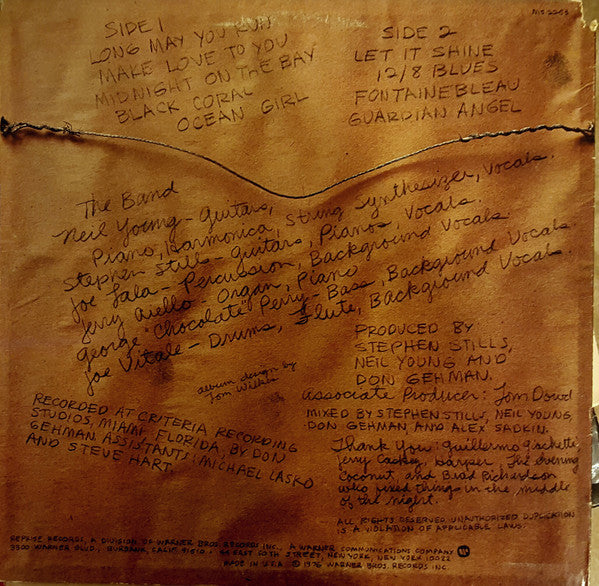 MS 2253
SIDE 1
LONG MAY YOU RUN
MAKE LOVE TO YOU
MIDNIGHT ON THE BAY
BLACK CORAL
OCEAN GIRL
SIDE 2
LET IT SHINE
12/8 BLUES
FONTAINEBLEAU
GUARDIAN ANGEL
The Band
Neil Young - Guitars,
Piano, Harmonica, String Synthesizer, Vocals.
Stephen Stills - Guitars, Pianos, Vocals.
Joe Lala - Percussion, Background Vocals
Jerry Aiello - Organ, Piano
George "Chocolate" Perry - Bass, Background Vocals
Joe Vitale - Drums, Flute, Background Vocal.
album design by
Tom Wilkes
RECORDED AT CRITERIA RECORDING
STUDIOS, MIAMI FLORIDA, BY DON
GEHMAN. ASSISTANTS: MICHAEL LASKO
AND STEVE HART.
PRODUCED BY
STEPHEN STILLS,
NEIL YOUNG AND
DON GEHMAN.
Associate Producer: Tom Dowd
MIXED BY STEPHEN STILLS, NEIL YOUNG,
DON GEHMAN AND ALEX SADKIN.
Thank You: Guillermo
Jerry Harper The evening
Coconut, and Brad Richardson
who fixed things in the middle
of the night.
ALL RIGHTS RESERVED. UNAUTHORIZED DUPLICATION
IS A VIOLATION OF APPLICABLE LAWS.
REPRISE RECORDS, A DIVISION OF WARNER BROS. RECORDS INC., A WARNER COMMUNICATIONS COMPANY
3300 WARNER BLVD., BURBANK, CALIF. 91510 · 44 EAST 50TH STREET, NEW YORK, NEW YORK 10022
MADE IN U.S.A. © 1976 WARNER BROS. RECORDS INC.